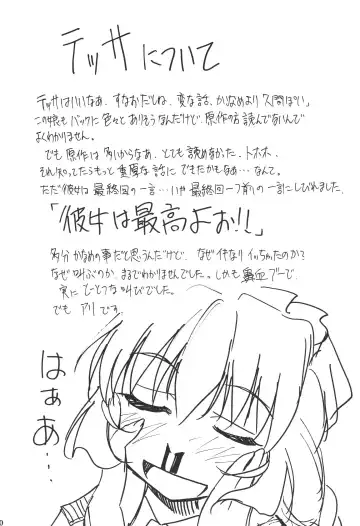 テッサについて
テッサはいいなあ、すなおだしね、変な話、かなめより「人間ぽい」
この娘もバックに色々とありそうなんだけど、原作の方読んでないんで
よくわかりません。
でも原作は多いからなあ、とても読めなかった、トホホ。
それ知ってたらもっと重厚な話にできたかもなあ…なんて。
ただ彼女は最終回の一言…いや最終回一つ前の一言にしびれました。
「彼女は最高よお!!」
多分かなめの事だと思うんだけど、なぜいきなりイッちゃたのか?
なぜ叫ぶのか、まるでわかりませんでした。しかも鼻血ブーで。
実に な叫びでした。
でもアリです。
はぁあ…